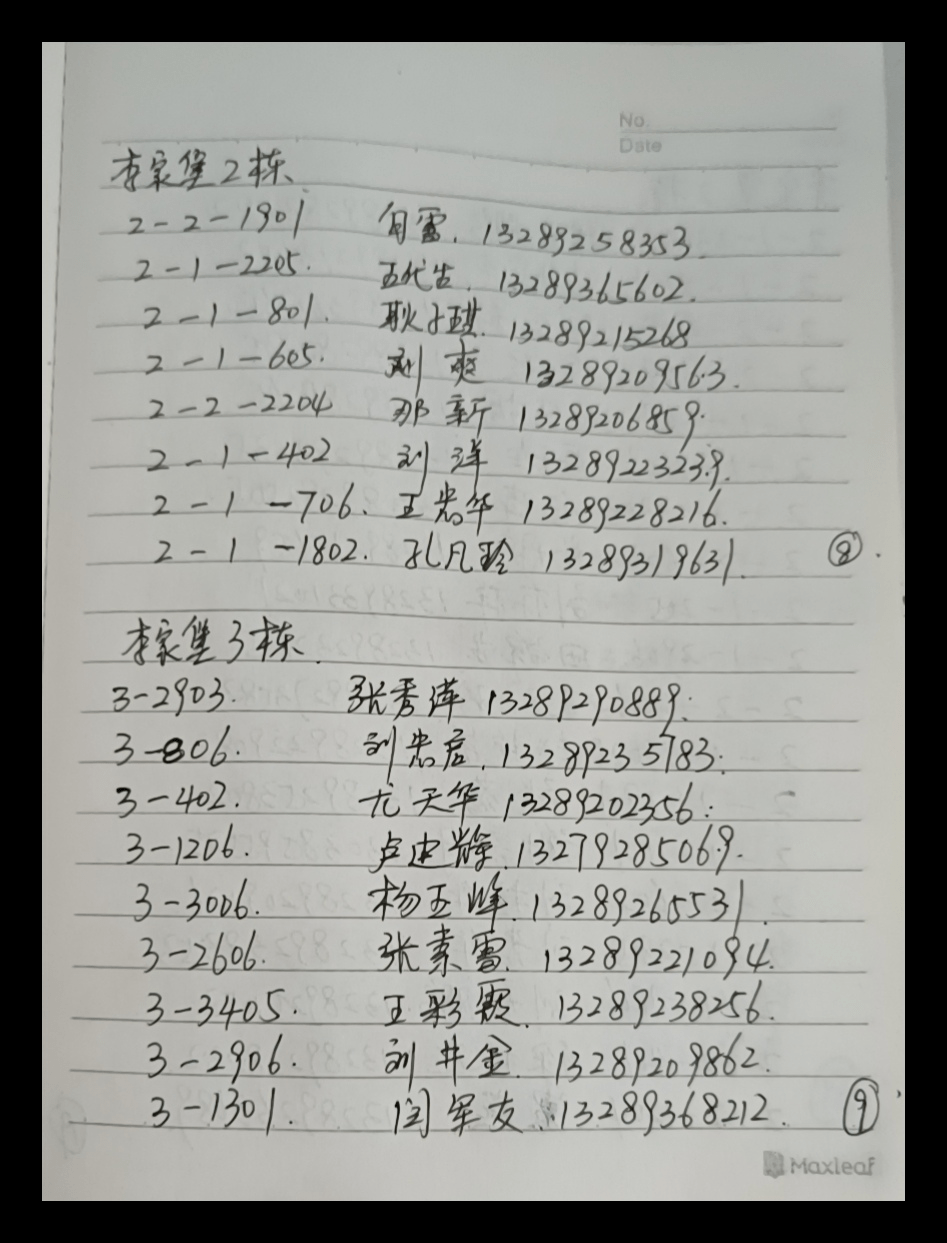 No.
Date
李家堡2栋
2-2-1901 白雷. 13289258353.
2-1-2205. 王代吉. 13289365602.
2-1-801. 耿子琪. 13289215268
2-1-605. 刘爽 13289209563.
2-2-2204 那新 13289206859.
2-1-402 刘洋 13289223239.
2-1-706. 王忠华 13289228216.
2-1-1802. 孔凡玲 13289319631. ⑧.
李家堡3栋.
3-2903. 张秀萍 13289290889.
3-806. 刘忠君. 13289235783.
3-402. 尤天华 13289202356.
3-1206. 卢忠辉. 13279285069.
3-3006. 杨玉峰. 13289265531.
3-2606. 张素雪. 13289221094.
3-3405. 王彩霞. 13289238256.
3-2906. 刘井金. 13289209862.
3-1301. 闫军友. 13289368212. ⑨
Maxleaf